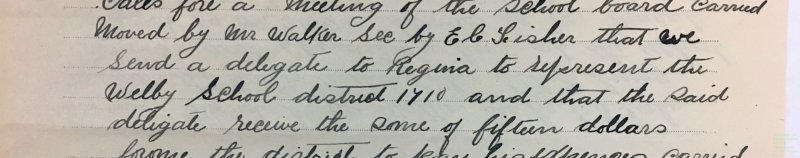 Calls fore a meeting of the school board carried
Moved by Mr Walker Sec by E C Fisher that we
send a delegate to Regina to represent the
Welby School district 1710 and that the said
deligate receive the some of fifteen dollars
frome the district to pay his expences carried